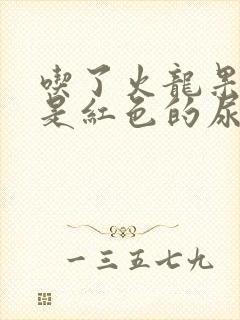 喫了火龍果
是紅色的尿
一三五七九